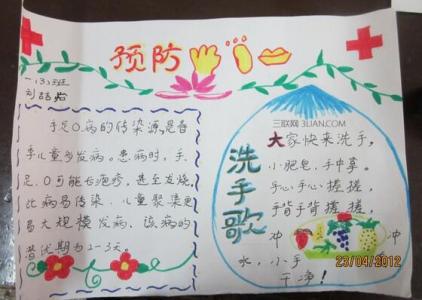 预防
一(3)班
三联网 3LIAN.COM
手足口病的传染源是春
季儿童多发病。患病时,手、
足、口可能长疱疹,甚至发烧。
此病易传染、儿童聚集更
易大规模发病、该病的
潜伏期为2-3天。
洗手歌
大家快来洗手,
小肥皂,手中拿。
手心手心搓搓,
手背手背搓搓,
冲冲
水,小手
干净!
23/04/2012